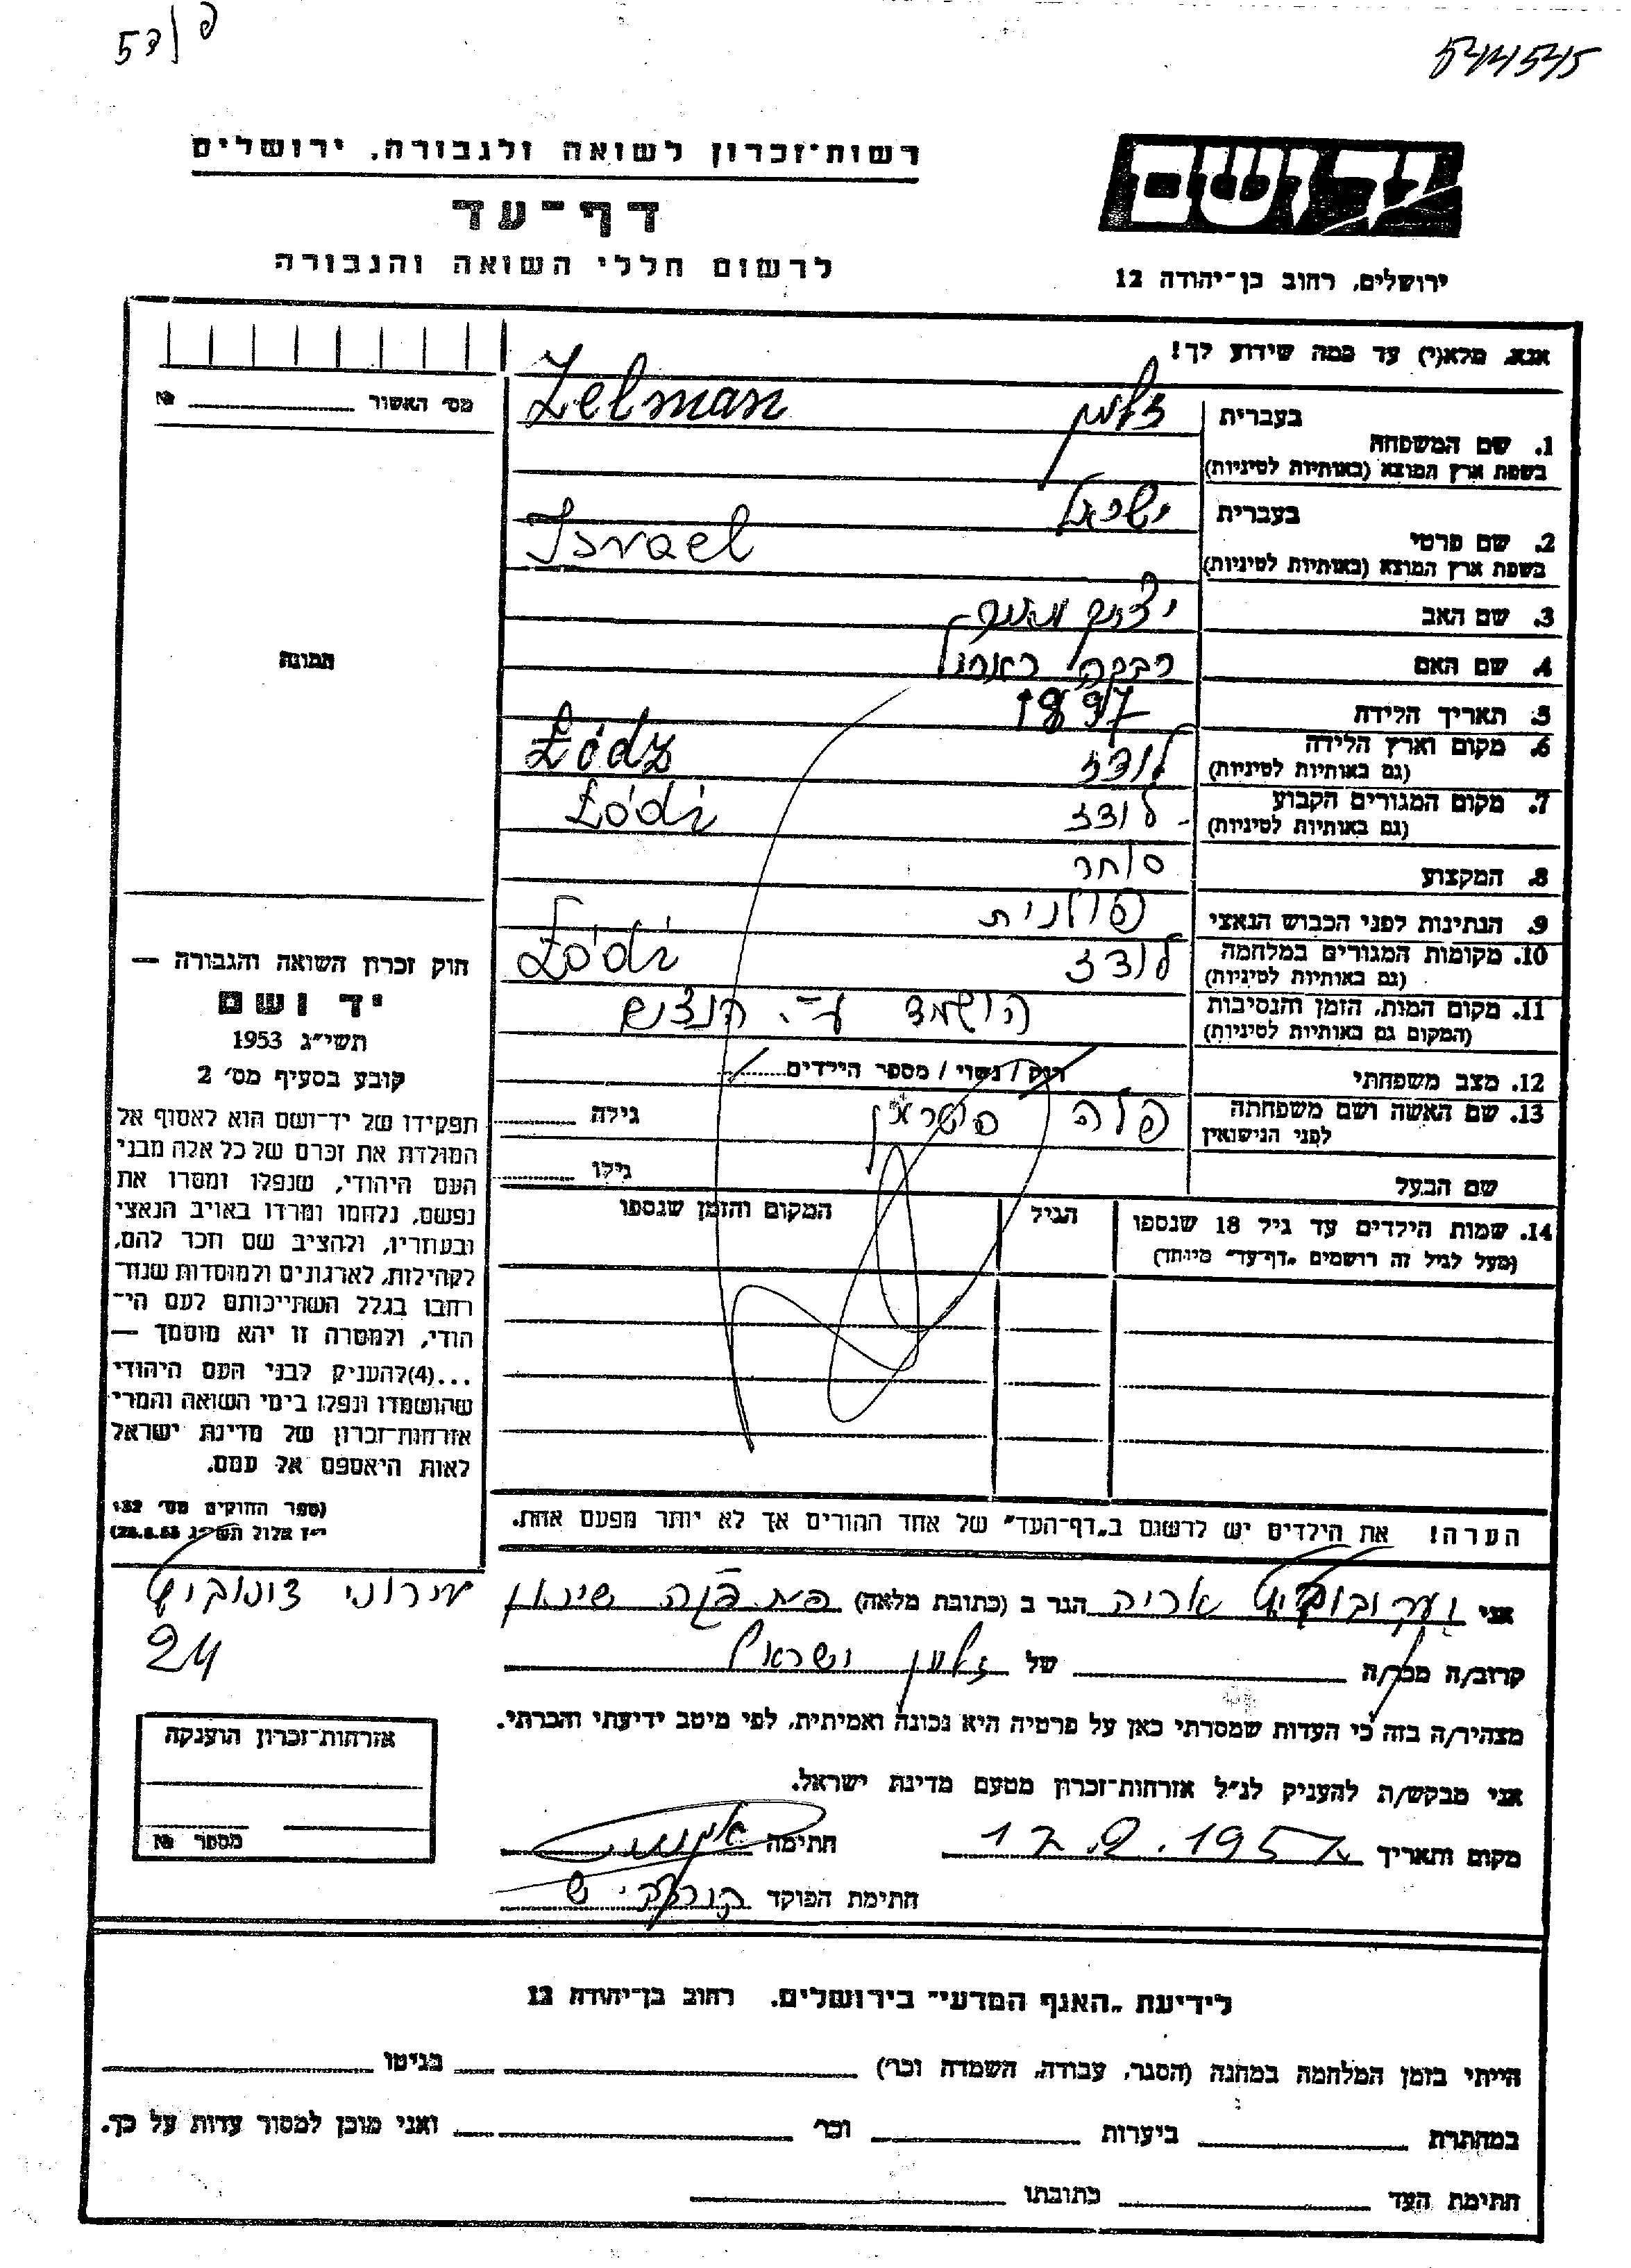 53
רשות־זכרון לשואה ולגבורה, ירושלים
יד ושם
דף־עד
לרשום חללי השואה והגבורה
ירושלים, רחוב בן־יהודה 12
אנא, מלא(י) עד כמה שידוע לך!
מס׳ האשור № 
1. שם המשפחה
בעברית זלמן
בשפת ארץ המוצא (באותיות לטיניות) Zelman
2. שם פרטי
בעברית ישראל
בשפת ארץ המוצא (באותיות לטיניות) Israel
3. שם האב יצחק מאיר
4. שם האם רבקה ראכיל
5. תאריך הלידה 1897
6. מקום וארץ הלידה לודז Łódz
(גם באותיות לטיניות)
7. מקום המגורים הקבוע לודז Łódź
(גם באותיות לטיניות)
8. המקצוע סוחר
9. הנתינות לפני הכבוש הנאצי פולנית
10. מקומות המגורים במלחמה לודז Łódź
(גם באותיות לטיניות)
11. מקום המות, הזמן והנסיבות הושמד ע־י הנצים
(המקום גם באותיות לטיניות)
12. מצב משפחתי רוק / נשוי / מספר הילדים
13. שם האשה ושם משפחתה פלה גילה
לפני הנישואין
שם הבעל גילו
14. שמות הילדים עד גיל 18 שנספו הגיל המקום והזמן שנספו
(מעל לגיל זה רושמים „דף־עד״ מיוחד)
הערה! את הילדים יש לרשום ב„דף־העד״ של אחד ההורים אך לא יותר מפעם אחת.
תמונה
חוק זכרון השואה והגבורה —
יד ושם
תשי״ג 1953
קובע בסעיף מס׳ 2
תפקידו של יד־ושם הוא לאסוף אל
המולדת את זכרם של כל אלה מבני
העם היהודי, שנפלו ומסרו את
נפשם, נלחמו ומרדו באויב הנאצי
ובעוזריו, ולהציב שם וזכר להם,
לקהילות, לארגונים ולמוסדות שנח־
רבו בגלל השתייכותם לעם הי־
הודי, ולמטרה זו יהא מוסמך —
...(4)להעניק לבני העם היהודי
שהושמדו ונפלו בימי השואה והמרי
אזרחות־זכרון של מדינת ישראל
לאות היאספם אל עמם.
(ספר החוקים מס׳ 132
י״ז אלול תשי״ג 28.8.53)
אני אריה הגר ב (כתובת מלאה)
24
קרוב/ה מכר/ה של זלמן ישראל
מצהיר/ה בזה כי העדות שמסרתי כאן על פרטיה היא נכונה ואמיתית, לפי מיטב ידיעתי והכרתי.
אני מבקש/ת להעניק לנ״ל אזרחות־זכרון מטעם מדינת ישראל.
מקום ותאריך חתימה
חתימת הפוקד
אזרחות־זכרון הוענקה
מספר №
לידיעת „האגף המדעי״ בירושלים. רחוב בן־יהודה 12
הייתי בזמן המלחמה במחנה (הסגר, עבודה, השמדה וכר׳) בגיטו
במחתרת ביערות וכר׳ ואני מוכן למסור עדות על כך.
חתימת העד כתובתו